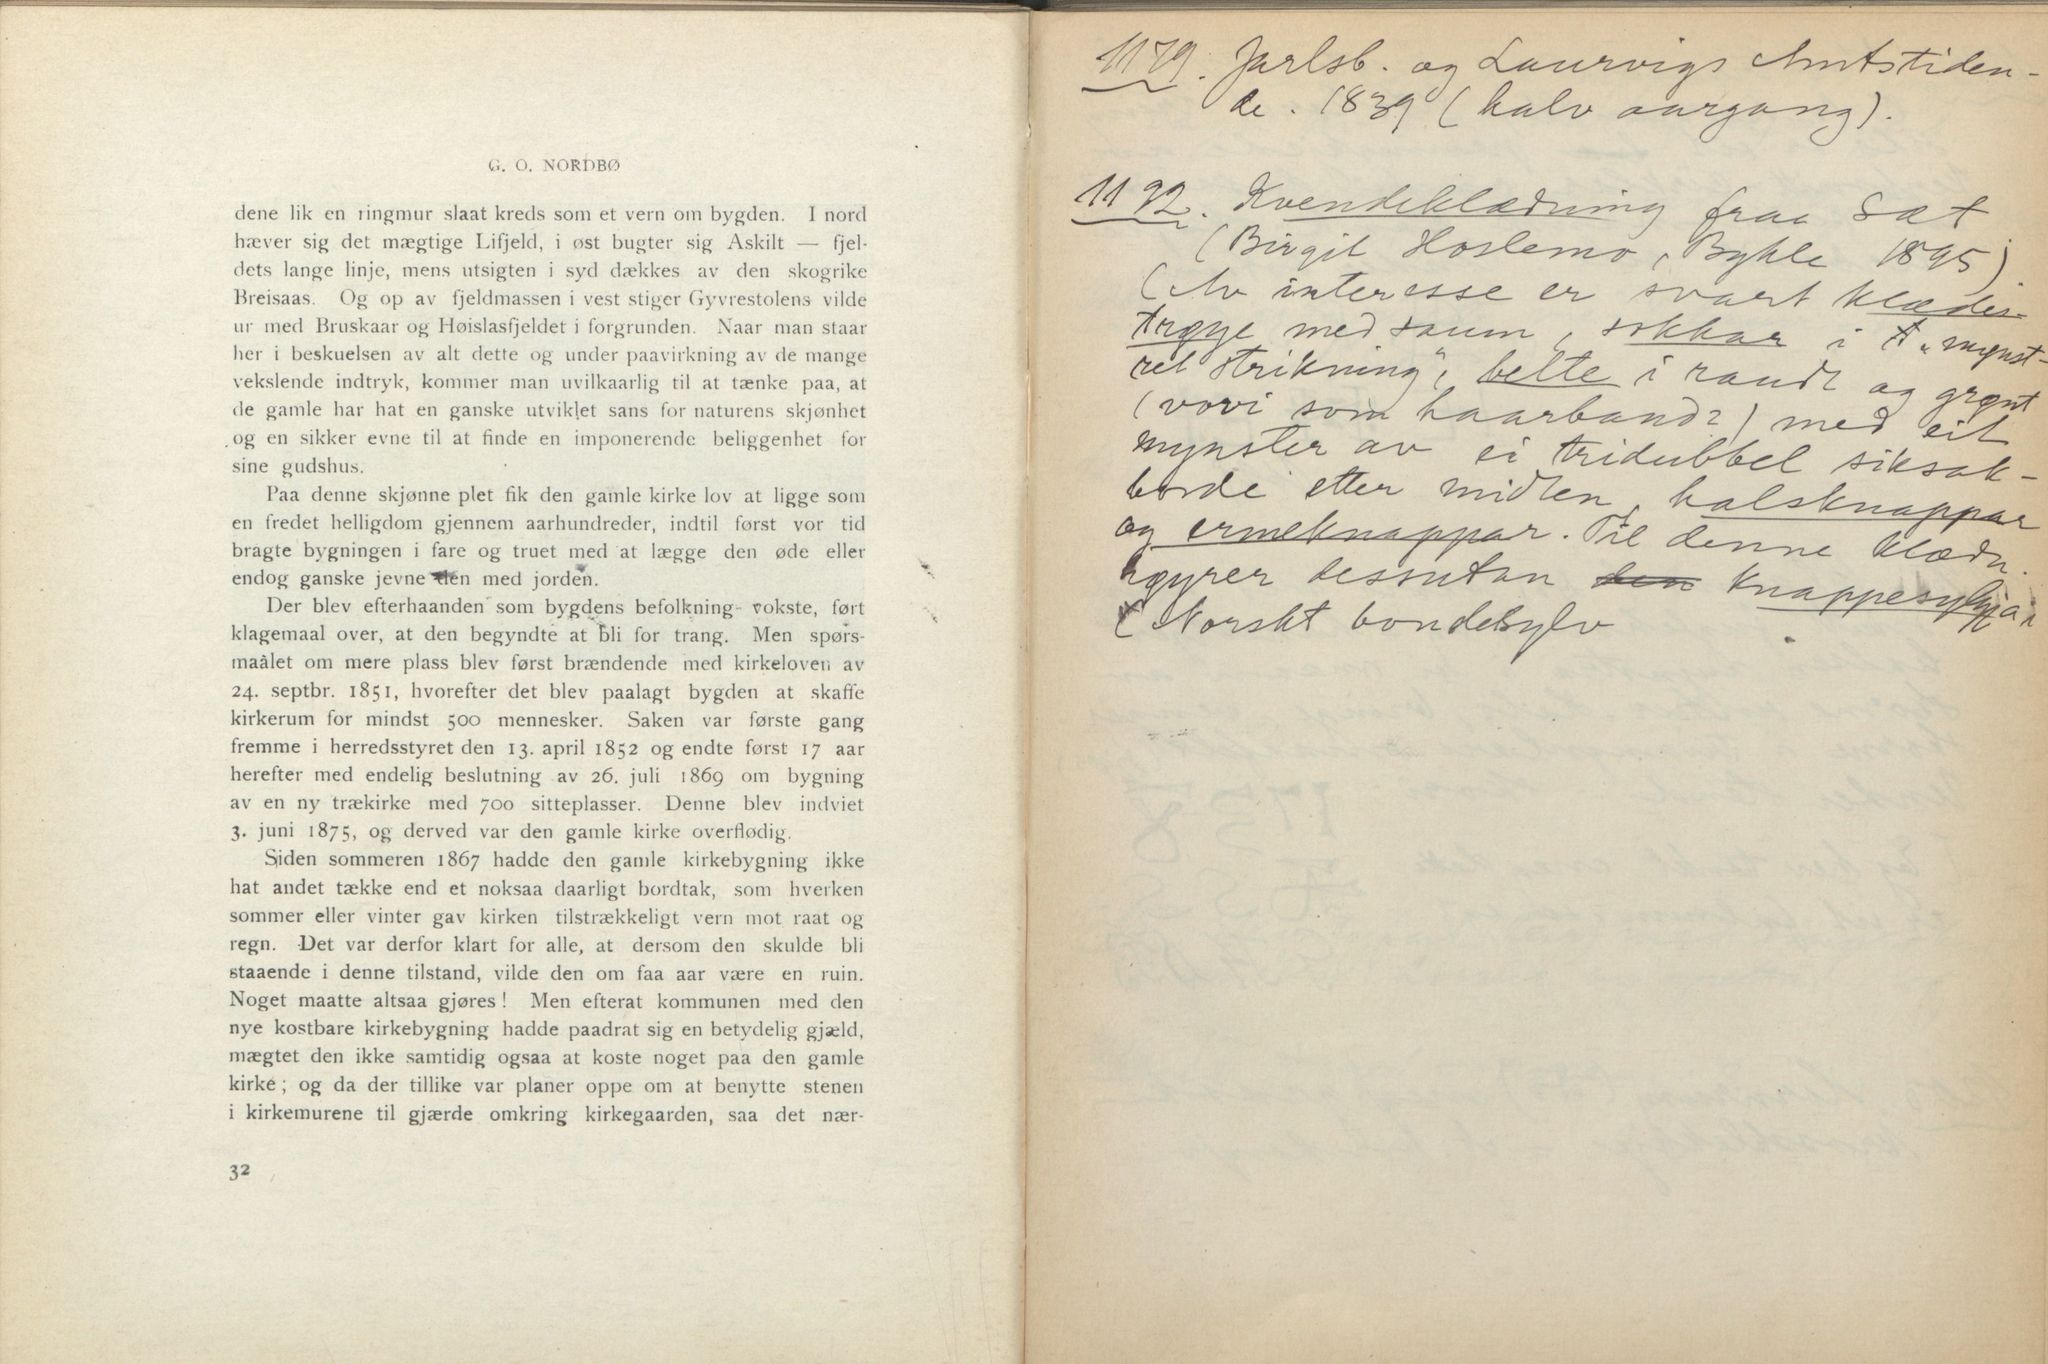 G. O. NORDBØ
dene lik en ringmur slaat kreds som et vern om bygden. I nord
hæver sig det mægtige Lifjeld, i øst bugter sig Askilt — fjel-
dets lange linje, mens utsigten i syd dækkes av den skogrike
Breisaas. Og op av fjeldmassen i vest stiger Gyvrestolens vilde
ur med Bruskaar og Høislasfjeldet i forgrunden. Naar man staar
her i beskuelsen av alt dette og under paavirkning av de mange
vekslende indtryk, kommer man uvilkaarlig til at tænke paa, at
de gamle har hat en ganske utviklet sans for naturens skjønhet
og en sikker evne til at finde en imponerende beliggenhet for
sine gudshus.
Paa denne skjønne plet fik den gamle kirke lov at ligge som
en fredet helligdom gjennem aarhundreder, indtil først vor tid
bragte bygningen i fare og truet med at lægge den øde eller
endog ganske jevne den med jorden.
Der blev efterhaanden som bygdens befolkning vokste, ført
klagemaal over, at den begyndte at bli for trang. Men spørs-
maålet om mere plass blev først brændende med kirkeloven av
24. septbr. 1851, hvorefter det blev paalagt bygden at skaffe
kirkerum for mindst 500 mennesker. Saken var første gang
fremme i herredsstyret den 13. april 1852 og endte først 17 aar
herefter med endelig beslutning av 26. juli 1869 om bygning
av en ny trækirke med 700 sitteplasser. Denne blev indviet
3. juni 1875, og derved var den gamle kirke overflødig.
Siden sommeren 1867 hadde den gamle kirkebygning ikke
hat andet tække end et noksaa daarligt bordtak, som hverken
sommer eller vinter gav kirken tilstrækkeligt vern mot raat og
regn. Det var derfor klart for alle, at dersom den skulde bli
staaende i denne tilstand, vilde den om faa aar være en ruin.
Noget maatte altsaa gjøres! Men efterat kommunen med den
nye kostbare kirkebygning hadde paadrat sig en betydelig gjæld,
mægtet den ikke samtidig ogsaa at koste noget paa den gamle
kirke; og da der tillike var planer oppe om at benytte stenen
i kirkemurene til gjærde omkring kirkegaarden, saa det nær-
32
1179. Jarlsb. og Laurvigs Amtstiden-
de. 1839 (halv aargang).
1192. Kvendeklædning fraa Sæt
(Birgit Hoslemo, Bykle 1895)
(Av interesse er svart klædes-
trøye med saum, sokkar i "mynst-
ret strikning", belte i raudt og grønt
(vovi som haarband) med eit
mynster av ei tridubbel siksak-
borde etter midten, halsknappar
og ermeknappar. Til denne klædn.
høyrer dessutan den knappesylgja i
(Norskt bondesylv